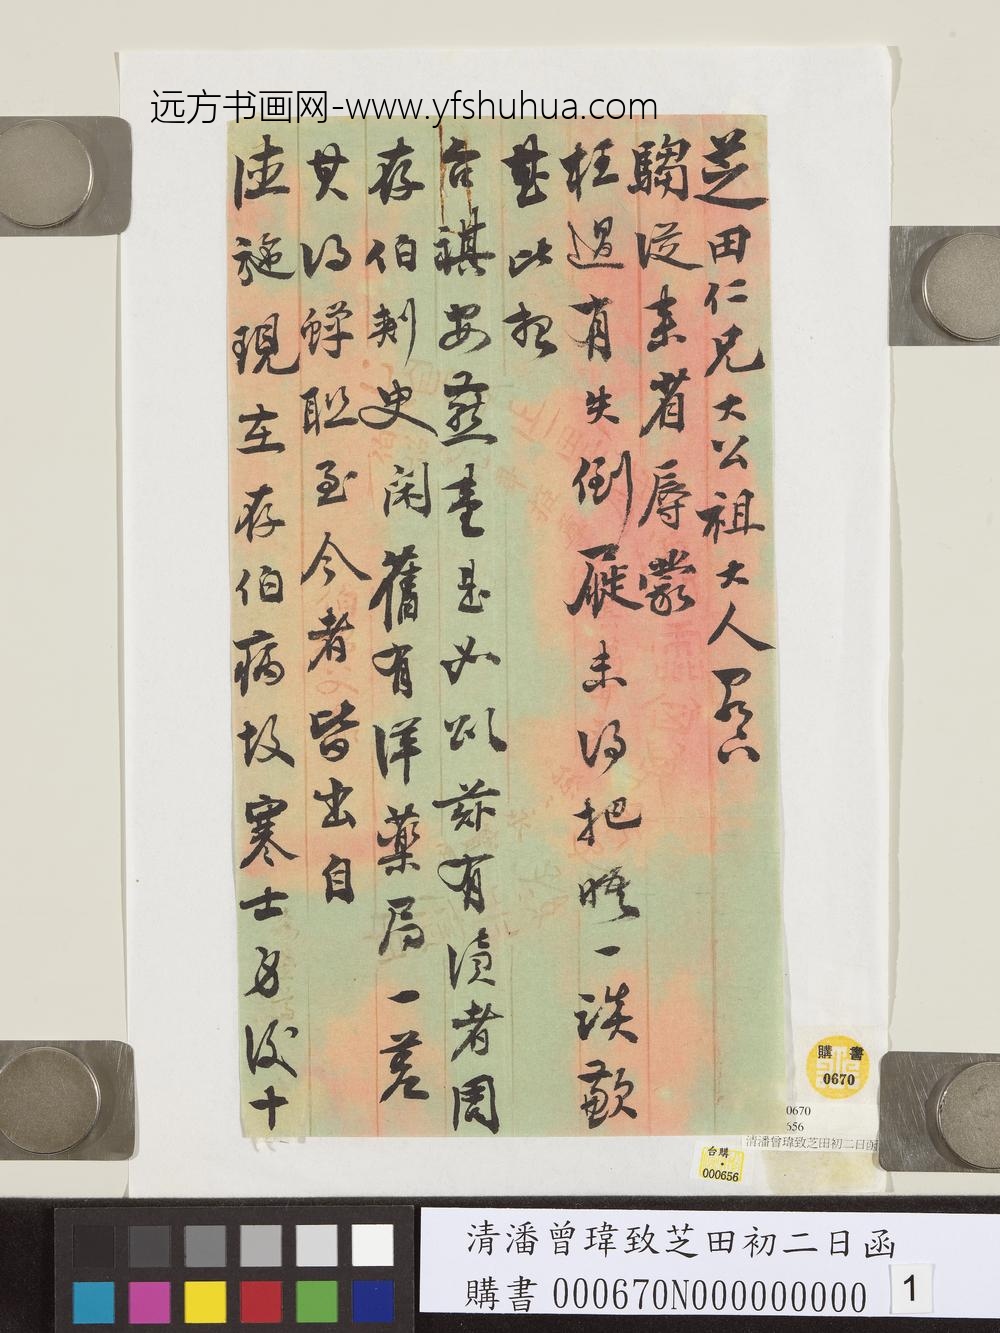 远方书画网-www.yfshuhua.com
芝田仁兄大公祖大人阁下
騶從來省辱蒙
枉過有失倒屣未得把晤一談歉
甚比想
台祺安燕臺是必以茲有瀆者周
存伯刺史閑舊有洋藥局一差
其得蟬聯至今者皆出自
德施現在存伯病故寒士身後十
購書
0670
0670
656
清潘曾瑋致芝田初二日函
台購
000656
清潘曾瑋致芝田初二日函
購書000670N000000000
1